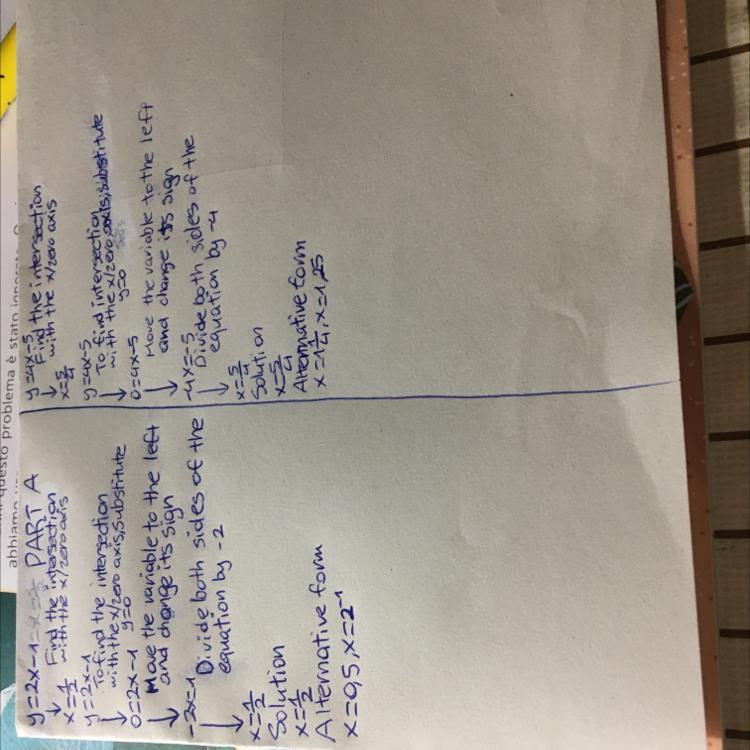 questo problema è stato ignorato
abbiamo
y=2x-1 PART A
↓ Find the intersection
with the x/zero axis
x=1/2
y=2x-1
↓ To find the intersection
with the x/zero axis, substitute
y=0
0=2x-1
↓ Move the variable to the left
and change its sign
-2x=-1
↓ Divide both sides of the
equation by -2
x=1/2
Solution
x=1/2
Alternative form
x=0,5, x=2⁻¹
y=4x-5
↓ Find the intersection
with the x/zero axis
x=5/4
y=4x-5
↓ To find intersection
with the x/zero axis, substitute
y=0
0=4x-5
↓ Move the variable to the left
and change its sign
-4x=-5
↓ Divide both sides of the
equation by -4
x=5/4
Solution
x=5/4
Alternative form
x=1 1/4, x=1,25